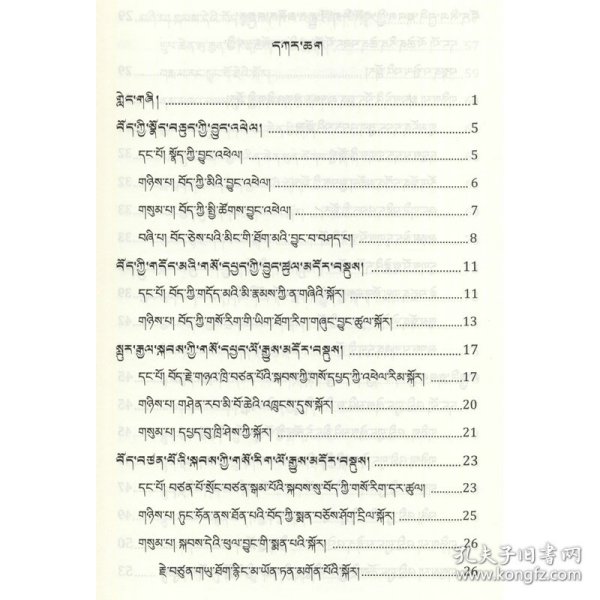 དཀར་ཆག
གླེང་གཞི། ........ 1
བོད་ཀྱི་སྣོད་བཅུད་ཀྱི་བྱུང་འཕེལ། ........ 5
དང་པོ། སྣོད་ཀྱི་བྱུང་འཕེལ། ........ 5
གཉིས་པ། བོད་ཀྱི་མིའི་བྱུང་འཕེལ། ........ 6
གསུམ་པ། བོད་ཀྱི་སྤྱི་ཚོགས་བྱུང་འཕེལ། ........ 7
བཞི་པ། བོད་ཅེས་པའི་མིང་གི་ཐོག་མའི་བྱུང་བ་བཤད་པ། ........ 8
བོད་ཀྱི་གདོད་མའི་གསོ་དཔྱད་ཀྱི་བྱུང་ཚུལ་མདོར་བསྡུས། ........ 11
དང་པོ། བོད་ཀྱི་གདོད་མའི་མི་རྣམས་ཀྱི་ན་གཞིའི་སྐོར། ........ 11
གཉིས་པ། བོད་ཀྱི་གསོ་རིག་གི་ཡིག་ཐོག་རིག་གཞུང་བྱུང་ཚུལ་སྐོར། ........ 13
སྤུར་རྒྱལ་སྐབས་ཀྱི་གསོ་དཔྱད་ལོ་རྒྱུས་མདོར་བསྡུས། ........ 17
དང་པོ། བོད་རྗེ་གཉའ་ཁྲི་བཙན་པོའི་སྐབས་ཀྱི་གསོ་དཔྱད་ཀྱི་འཕེལ་རིམ་སྐོར། ........ 17
གཉིས་པ། གཤེན་རབ་མི་བོ་ཆེའི་འཁྲུངས་དུས་སྐོར། ........ 20
གསུམ་པ། དཔྱད་བུ་ཁྲི་ཤེས་ཀྱི་སྐོར། ........ 21
བོད་བཙན་པོའི་སྐབས་ཀྱི་གསོ་རིག་ལོ་རྒྱུས་མདོར་བསྡུས། ........ 23
དང་པོ། བཙན་པོ་སྲོང་བཙན་སྒམ་པོའི་སྐབས་སུ་བོད་ཀྱི་གསོ་རིག་དར་ཚུལ། ........ 23
གཉིས་པ། ཏུང་ཧོན་ནས་ཐོན་པའི་བོད་ཀྱི་སྨན་བཅོས་ཤོག་དྲིལ་སྐོར། ........ 25
གསུམ་པ། སྐབས་དེའི་ཕུལ་བྱུང་གི་སྨན་པའི་སྐོར། ........ 26
རྗེ་བཙུན་གཡུ་ཐོག་རྙིང་མ་ཡོན་ཏན་མགོན་པོའི་སྐོར། ........ 26
孔夫子旧书网
kongfz.com